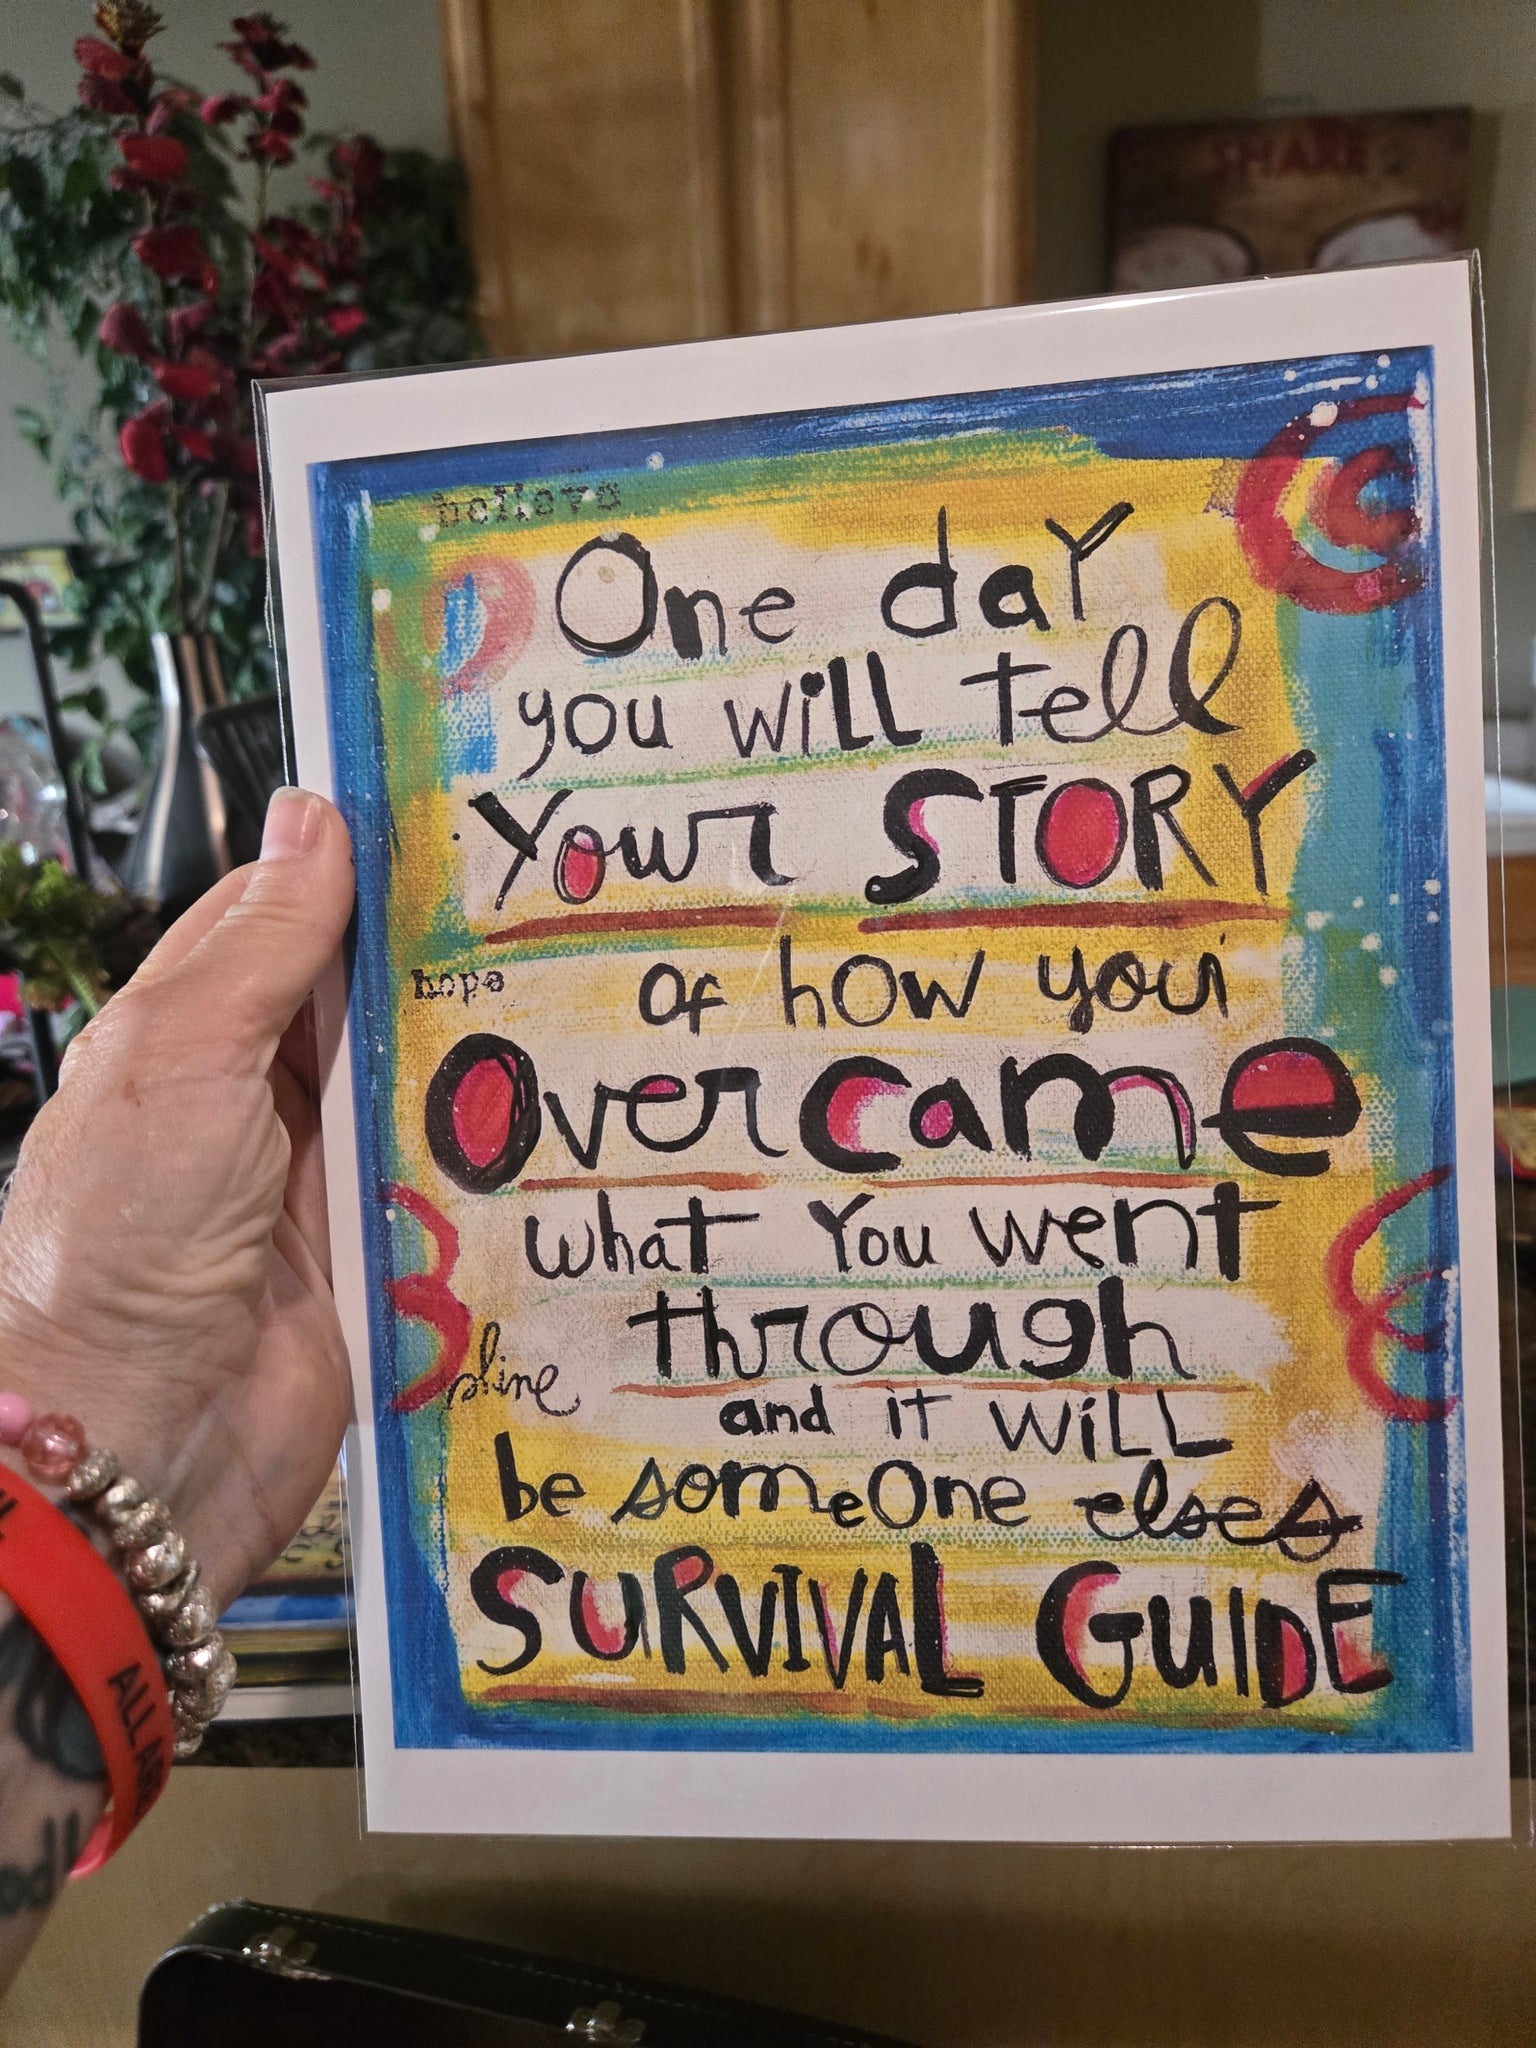 SHARE
believe
One day
you will tell
Your STORY
hope
of how you
Overcame
what You went
through
shine
and it WILL
be someone elses
SURVIVAL GUIDE
ALL ARE